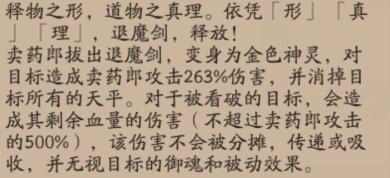 释物之形，道物之真理。依凭「形」「真
」「理」，退魔剑，释放！
卖药郎拔出退魔剑，变身为金色神灵，对
目标造成卖药郎攻击263%伤害，并消掉目
标所有的天平。对于被看破的目标，会造
成其剩余血量的伤害（不超过卖药郎攻击
的500%），该伤害不会被分摊，传递或吸
收，并无视目标的御魂和被动效果。